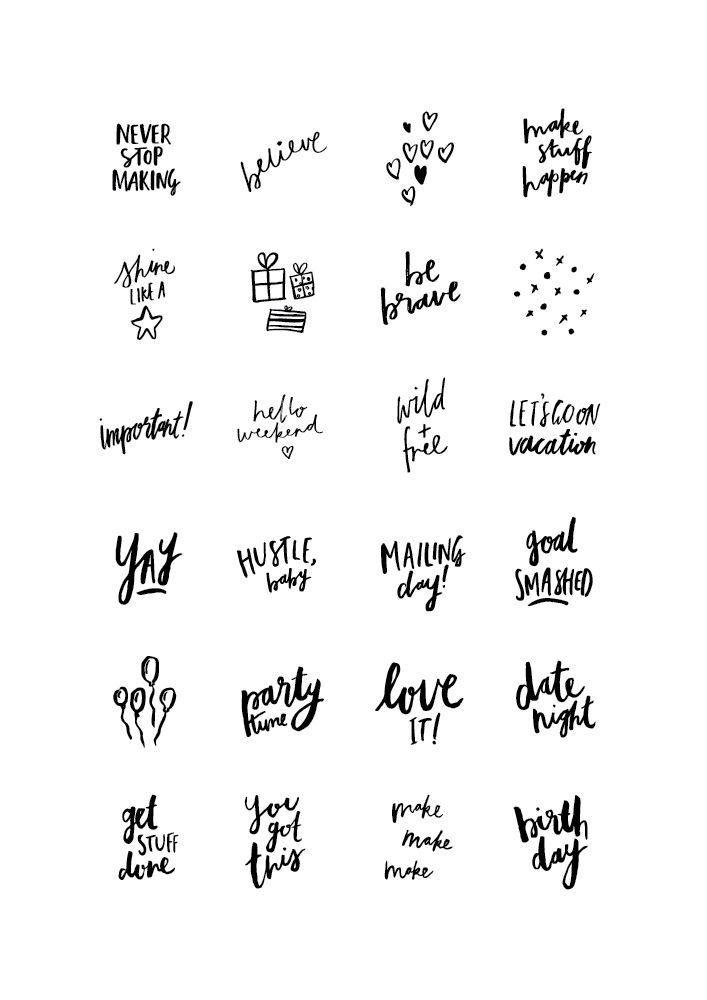 NEVER
STOP
MAKING
believe
make
stuff
happen
shine
LIKE A
be
brave
important!
hello
weekend
wild
+
free
LET'S GO ON
vacation
YAY
HUSTLE,
baby
MAILING
day!
goal
SMASHED
party
time
love
IT!
date
night
get
STUFF
done
you
got
this
make
make
make
birth
day